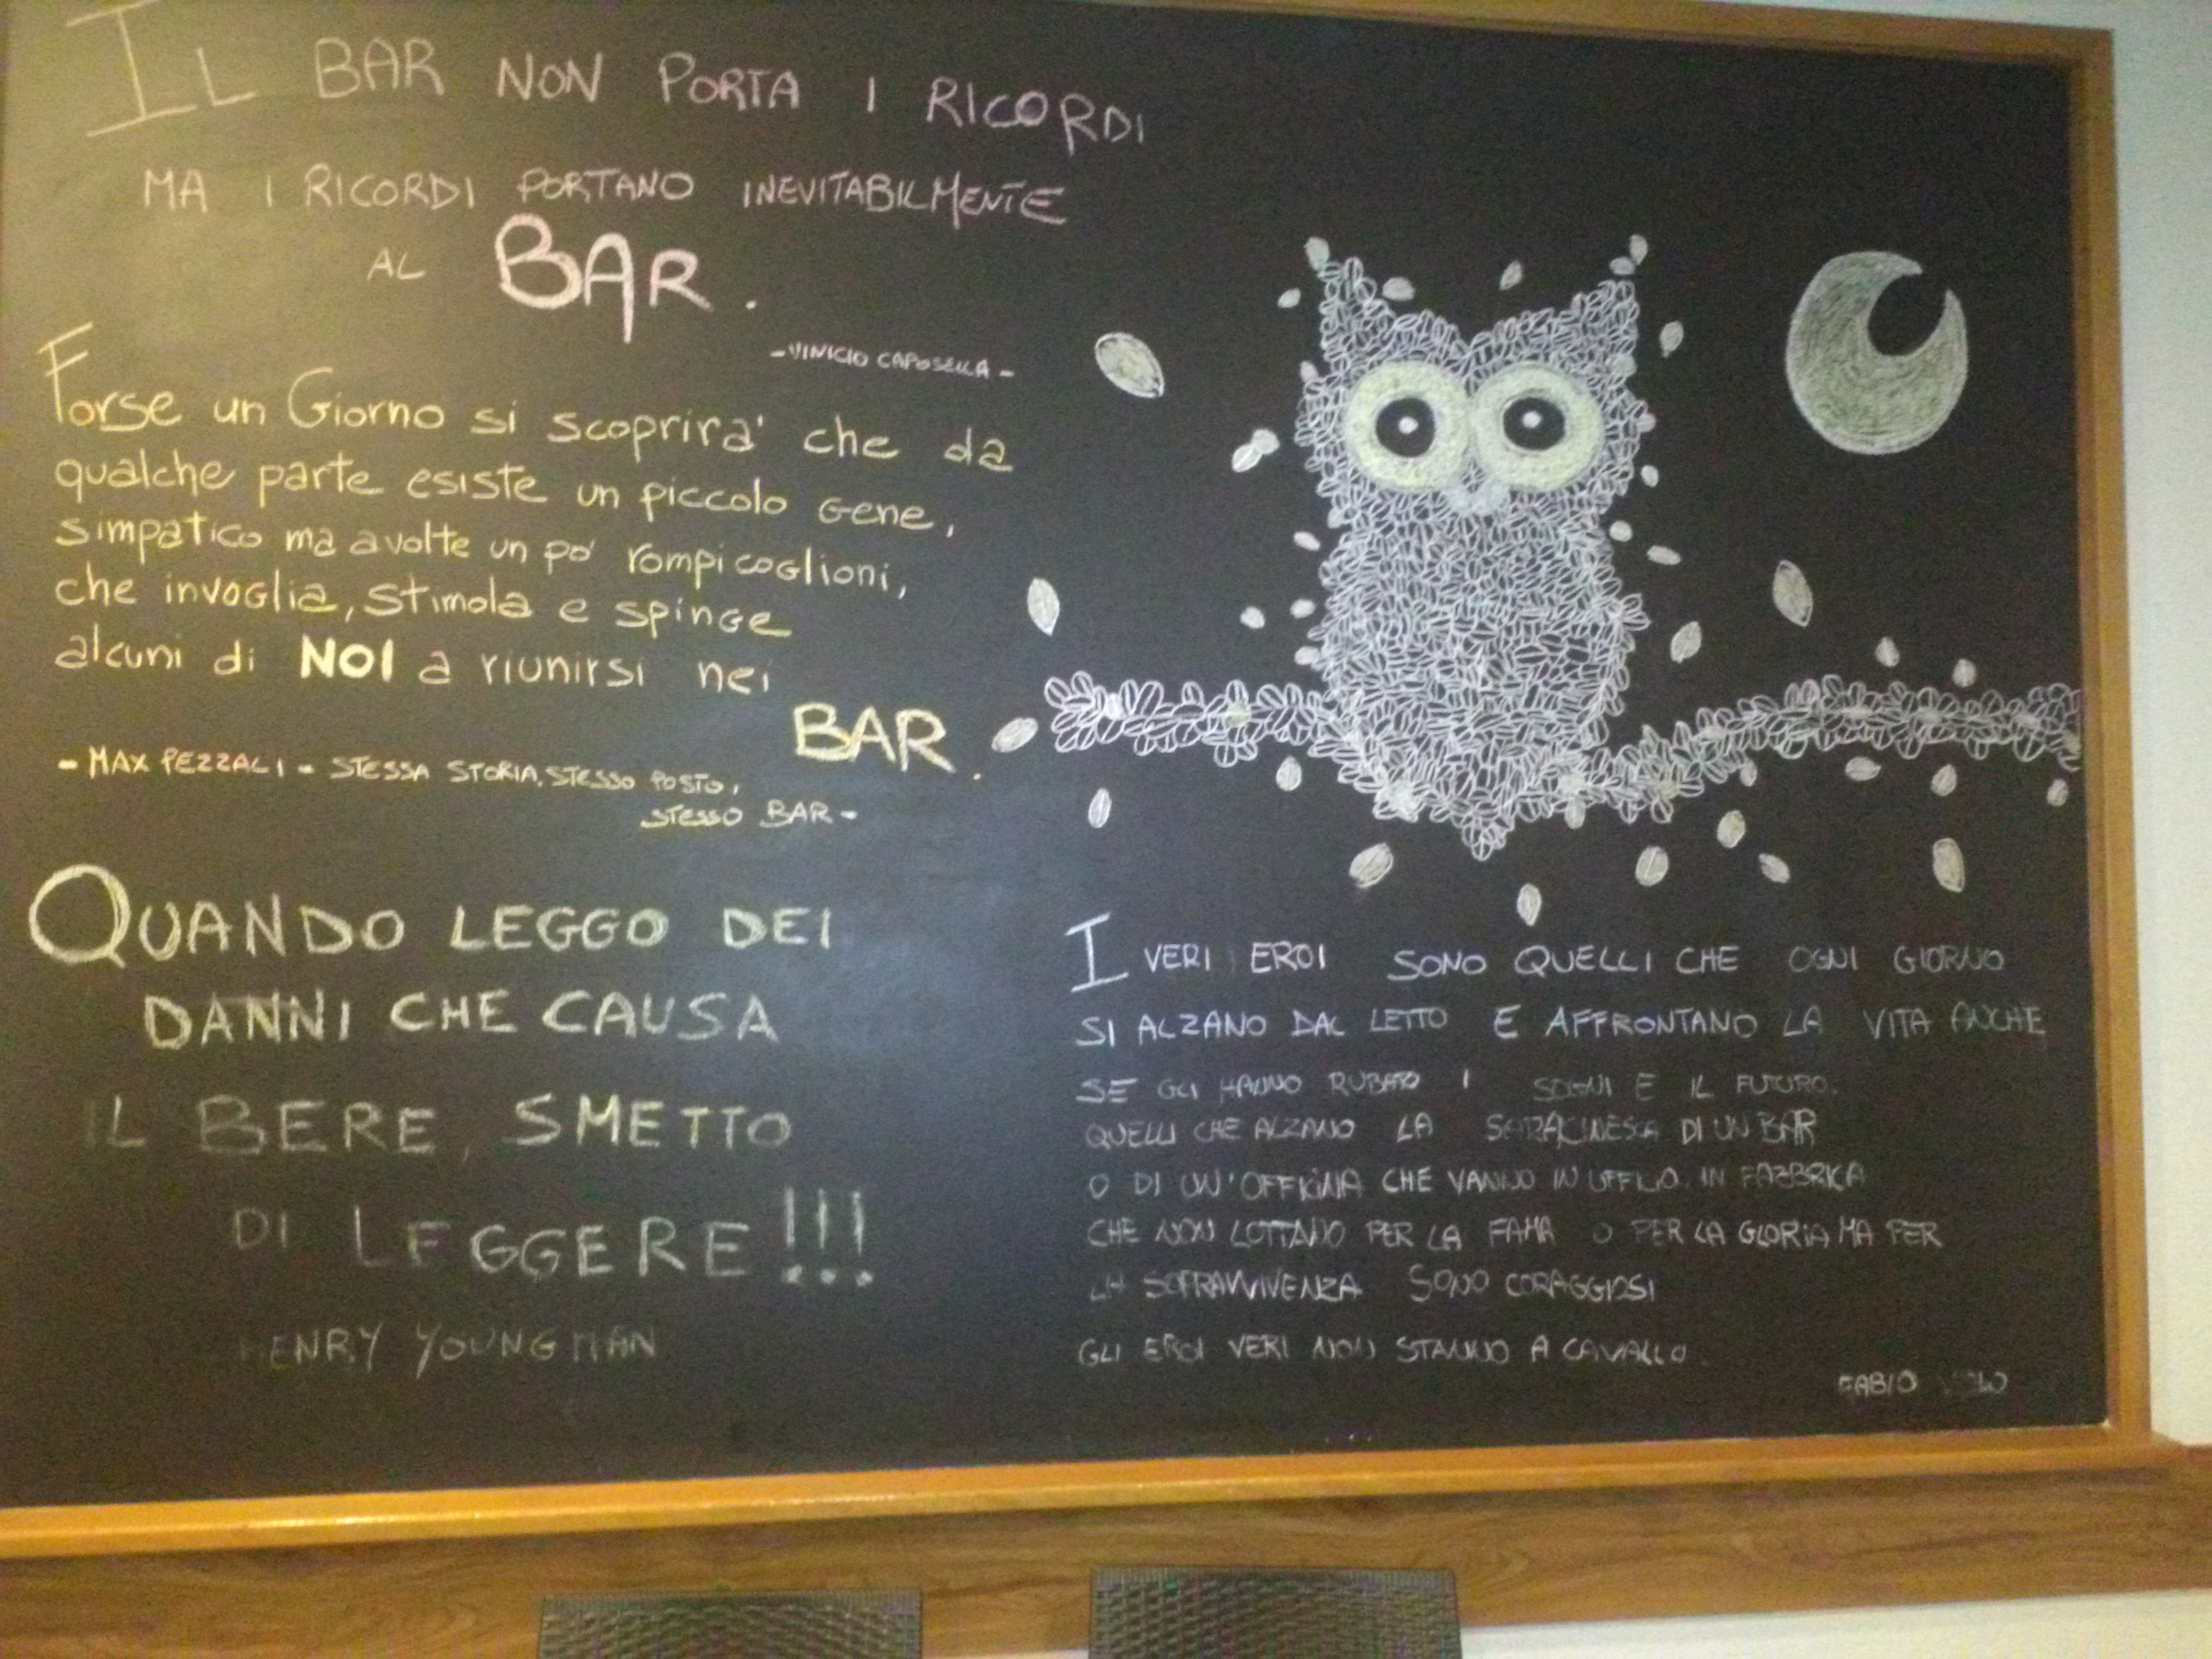 IL BAR NON PORTA I RICORDI
MA I RICORDI PORTANO INEVITABILMENTE
AL BAR.
-VINICIO CAPOSELLA-
Forse un Giorno si scoprira' che da
qualche parte esiste un piccolo Gene,
simpatico ma avolte un po' rompicoglioni,
che invoglia, stimola e spinge
alcuni di NOI a riunirsi nei
BAR.
- MAX PEZZALI - STESSA STORIA, STESSO POSTO,
STESSO BAR -
QUANDO LEGGO DEI
DANNI CHE CAUSA
IL BERE, SMETTO
DI LEGGERE!!!
HENRY YOUNGMAN
I VERI EROI SONO QUELLI CHE OGNI GIORNO
SI ALZANO DAL LETTO E AFFRONTANO LA VITA ANCHE
SE GLI HANNO RUBATO I SOGNI E IL FUTURO.
QUELLI CHE ALZANO LA SARACINESCA DI UN BAR
O DI UN'OFFICINA CHE VANNO IN UFFICIO, IN FABBRICA
CHE NON LOTTANO PER LA FAMA O PER LA GLORIA MA PER
LA SOPRAVVIVENZA SONO CORAGGIOSI
GLI EROI VERI NON STANNO A CAVALLO.
FABIO VOLO